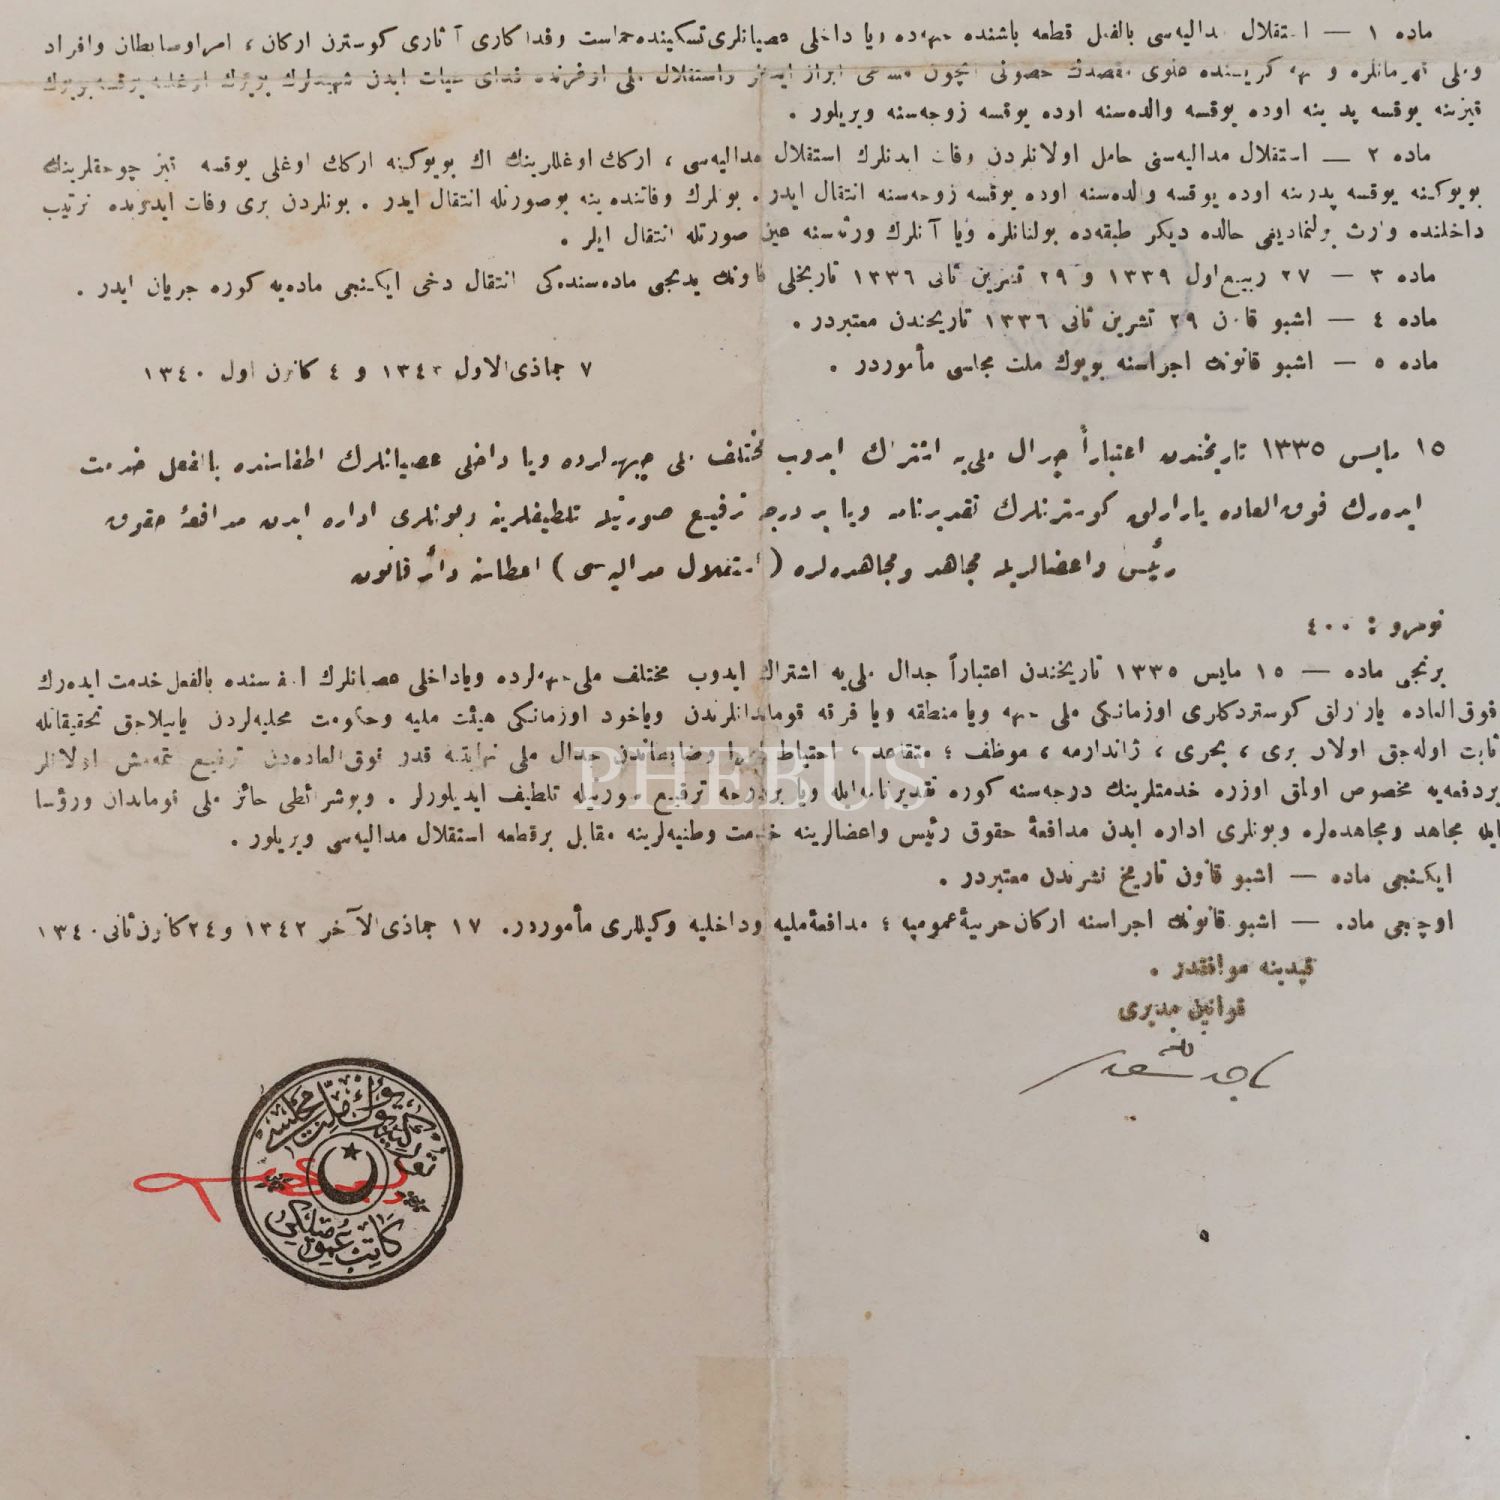 ماده ١ — استقلال مداليه‌سی بالفعل قطعه باشنده جبهه‌ده ويا داخلی عصيانلری تسكينده حماست وفداكاری آثاری كوسترن اركان ، امرا وضابطان وافراد
وملی قهرمانلره و جبهه كريسنده علوی مقصدك حصولی ايچون مساعی ابراز ايدنلر واستقلال ملی اوغرنده فدای حيات ايدن شهيدلرك بويوك اوغلنه يوقسه بويوك
قيزينه يوقسه پدرينه اوده يوقسه والده‌سنه اوده يوقسه زوجه‌سنه ويريلور .
ماده ٢ — استقلال مداليه‌سنی حامل اولانلردن وفات ايدنلرك استقلال مداليه‌سی ، اركك اوغللرينك اك بويوكنه اركك اوغلی يوقسه قيز چوجقلرينك
بويوكنه يوقسه پدرينه اوده يوقسه والده‌سنه اوده يوقسه زوجه‌سنه انتقال ايدر . بونلرك وفاتنده ينه بوصورتله انتقال ايدر . بونلردن بری وفات ايدوبده ترتيب
داخلنده وارث بولنماديغی حالده ديكر طبقه‌ده بولنانلره ويا آنلرك ورثه‌سنه عين صورتله انتقال ايلر .
ماده ٣ — ٢٧ ربيع اول ١٣٣٩ و ٢٩ تشرين ثانی ١٣٣٦ تاريخلی قانونك يدنجی ماده‌سنده‌كی انتقال دخی ايكنجی ماده‌يه كوره جريان ايدر .
ماده ٤ — اشبو قانون ٢٩ تشرين ثانی ١٣٣٦ تاريخندن معتبردر .
ماده ٥ — اشبو قانونك اجراسنه بويوك ملت مجلسی مأموردر .
٧ جمادی‌الاول ١٣٤٢ و ٤ كانون اول ١٣٤٠
١٥ مايس ١٣٣٥ تاريخندن اعتباراً جدال ملی‌يه اشتراك ايدوب مختلف ملی جبهه‌لرده ويا داخلی عصيانلرك اطفاسنده بالفعل خدمت
ايده‌رك فوق‌العاده يارارلق كوسترنلرك تقديرنامه ويا بر درجه ترفيع صورتيله تلطيفلرينه وبونلری اداره ايدن مدافعۀ حقوق
رئيس واعضالريله مجاهد ومجاهده‌لره ( استقلال مداليه‌سی ) اعطاسنه دائر قانون
نومرو : ٤٠٠
برنجی ماده — ١٥ مايس ١٣٣٥ تاريخندن اعتباراً جدال ملی‌يه اشتراك ايدوب مختلف ملی جبهه‌لرده وياداخلی عصيانلرك اطفاسنده بالفعل خدمت ايده‌رك
فوق‌العاده يارارلق كوستردكلری اوزمانكی ملی جبهه ويا منطقه ويا فرقه قوماندانلرندن وياخود اوزمانكی هيئت مليه وحكومت محليه‌لردن ياپيلاجق تحقيقاتله
ثابت اوله‌جق اولان بری ، بحری ، ژاندارمه ، موظف ؛ متقاعد ، احتياط امرا وضابطاندن جدال ملی نهايتنه قدر فوق‌العاده‌دن ترفيع ايتمه‌مش اولانلر
بردفعه‌يه مخصوص اولمق اوزره خدمتلرينك درجه‌سنه كوره تقديرنامه ايله ويا بردرجه ترفيع صورتيله تلطيف ايديلورلر . وبوشرائطی حائز ملی قوماندان ورؤسا
ايله مجاهد ومجاهده‌لره وبونلری اداره ايدن مدافعۀ حقوق رئيس واعضالرينه خدمت وطنيه‌لرينه مقابل برقطعه استقلال مداليه‌سی ويريلور .
ايكنجی ماده — اشبو قانون تاريخ نشرندن معتبردر .
اوچنجی ماده — اشبو قانونك اجراسنه اركان حربيۀ عموميه ؛ مدافعۀ مليه وداخليه وكيللری مأموردر. ١٧ جمادی‌الآخر ١٣٤٢ و ٢٤ كانون ثانی ١٣٤٠
قيدينه موافقدر .
قوانين مديری
PHEBUS
توركيه بويوك ملت مجلسی
كاتب عموميلكی
٥